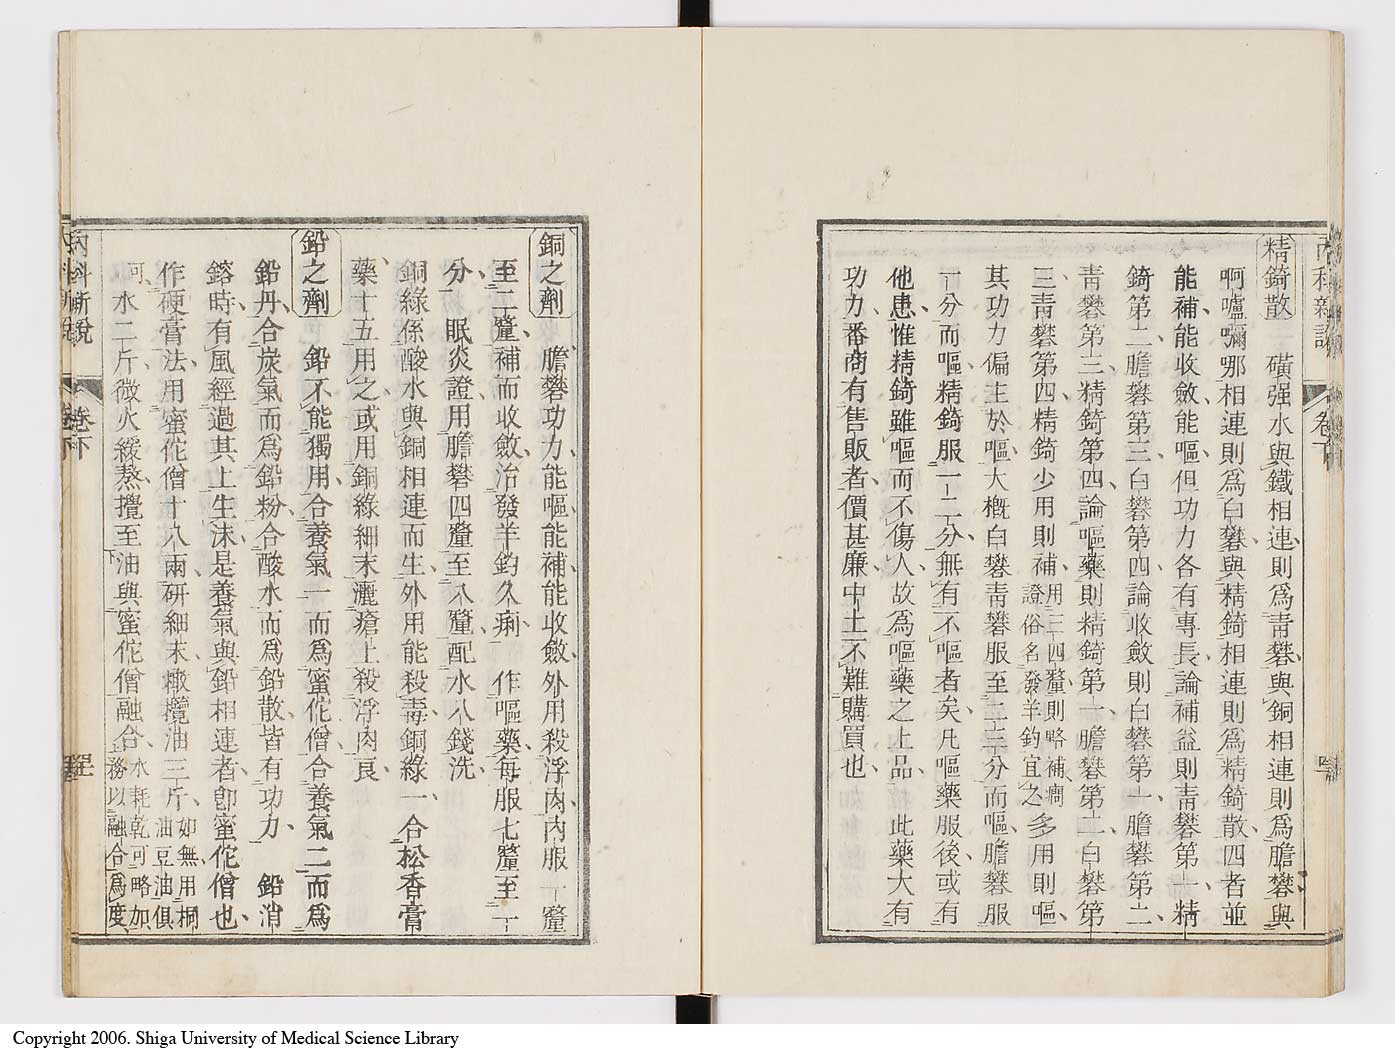 內科新說 卷下
精錡散 磺强水與鐵相連則爲靑礬與銅相連則爲膽礬與
啊嚧嚩哪相連則爲白礬與精錡相連則爲精錡散四者並
能補能收斂能嘔但功力各有專長論補益則靑礬第一精
錡第二膽礬第三白礬第四論收斂則白礬第一膽礬第二
靑礬第三精錡第四論嘔藥則精錡第一膽礬第二白礬第
三靑礬第四精錡少用則補用三四釐則略補癎證俗名發羊釣宜之多用則嘔
其功力偏主於嘔大槪白礬靑礬服至二三分而嘔膽礬服
一分而嘔精錡服一二分無有不嘔者矣凡嘔藥服後或有
他患惟精錡雖嘔而不傷人故爲嘔藥之上品此藥大有
功力番商有售販者價甚廉中土不難購買也
銅之劑 膽礬功力能嘔能補能收斂外用殺浮肉內服一釐
至二釐補而收斂治發羊釣久痢 作嘔藥每服七釐至一
分 眼炎證用膽礬四釐至八釐配水八錢洗
銅綠係酸水與銅相連而生外用能殺毒銅綠一合松香膏
藥十五用之或用銅綠細末灑瘡上殺浮肉良
鉛之劑 鉛不能獨用合養氣一而爲蜜佗僧合養氣二而爲
鉛丹合炭氣而爲鉛粉合酸水而爲鉛散皆有功力 鉛消
鎔時有風經過其上生沫是養氣與鉛相連者卽蜜佗僧也
作硬膏法用蜜佗僧十八兩硏細末橄欖油三斤如無用桐油豆油俱
可水二斤微火緩熬攪至油與蜜佗僧融合水耗乾可略加務以融合爲度
內科新說 卷下